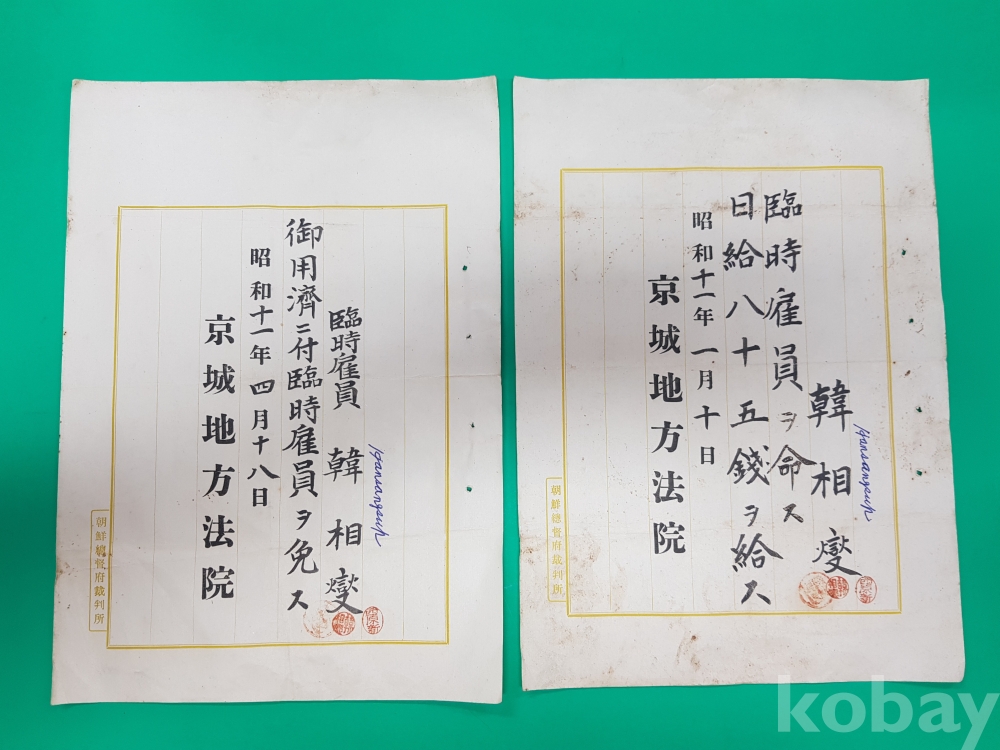 韓相燮
臨時雇員ヲ命ス
日給八十五錢ヲ給ス
昭和十一年一月十日
京城地方法院
朝鮮總督府裁判所
Hansangsup
臨時雇員 韓相燮
御用濟ニ付臨時雇員ヲ免ス
昭和十一年四月十八日
京城地方法院
朝鮮總督府裁判所
Hansangsup
kobay